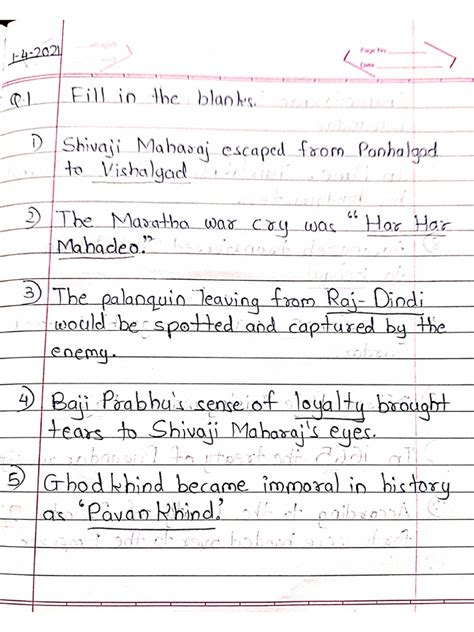 1-4-2021
Page No.
Date
Q.1 Fill in the blanks.
1) Shivaji Maharaj escaped from Panhalgad
to Vishalgad
2) The Maratha war cry was "Har Har
Mahadeo."
3) The palanquin leaving from Raj-Dindi
would be spotted and captured by the
enemy.
4) Baji Prabhu's sense of loyalty brought
tears to Shivaji Maharaj's eyes.
5) Ghodkhind became immoral in history
as 'Pavan Khind.'